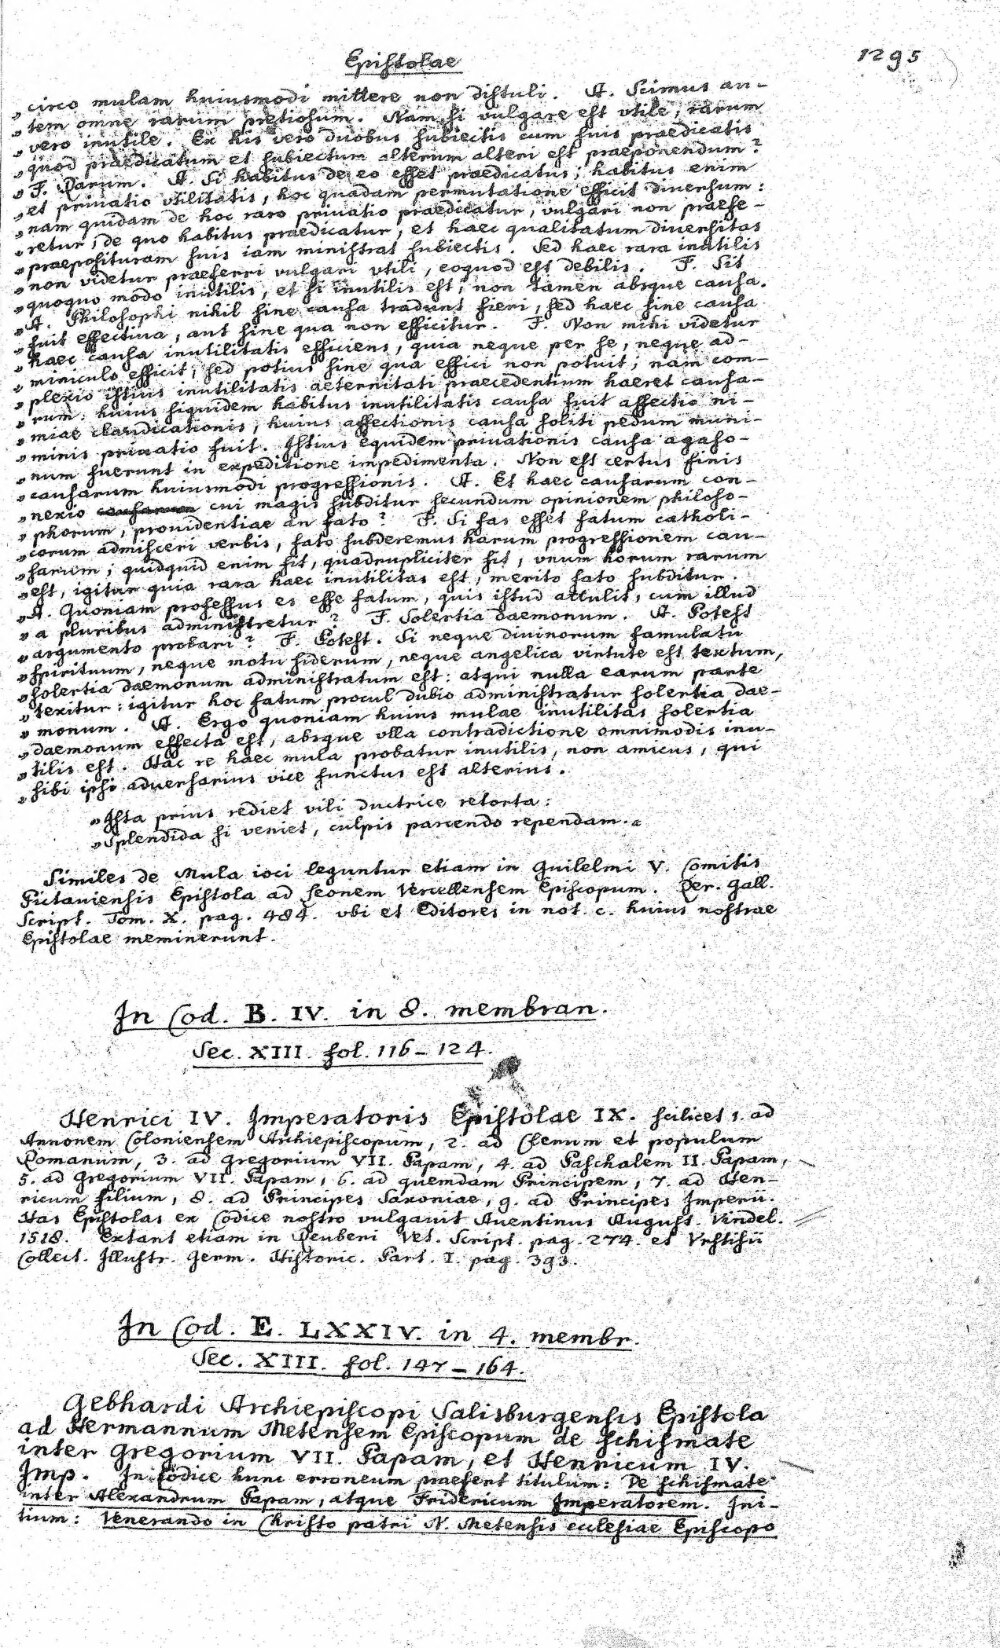 Epistolae
1295
„circo mulam huiusmodi mittere non distuli. A. Scimus au-
„tem omne rarum pretiosum. Nam si vulgare est vtile, rarum
„vero inutile. Ex his vero duobus subiectis cum suis praedicatis
„quod praedicatum et subiectum alterum alteri est praeponendum?
„F. Rarum. A. Si habitus de eo esset praedicatus; habitus enim
„et priuatio vtilitatis, hoc quadam permutatione efficit diuersum:
„nam quidam de hoc raro priuatio praedicatur, vulgari non praefe-
„retur, de quo habitus praedicatur, et haec qualitatum diuersitas
„praeposituram suis iam ministrat subiectis. Sed haec rara inutilis
„non videtur praeferri vulgari vtili, eoquod est debilis. F. Sit
„quoquo modo inutilis, et si inutilis est, non tamen absque causa.
„A. Philosophi nihil sine causa tradunt fieri, sed haec sine causa
„fuit effectiua, aut sine qua non efficitur. F. Non mihi videtur
„haec causa inutilitatis efficiens, quia neque per se, neque ad-
„miniculo efficit, sed potius sine qua effici non potuit; nam com-
„plexio istius inutilitatis aeternitati praecedentium haeret causa-
„rum: huius siquidem habitus inutilitatis causa fuit affectio ni-
„miae claudicationis, huius affectionis causa soliti pedum muni-
„minis priuatio fuit. Istius equidem priuationis causa agaso-
„num fuerunt in expeditione impedimenta. Non est certus finis
„causarum huiusmodi progressionis. A. Et haec causarum con-
„nexio causarum cui magis subditur secundum opinionem philoso-
„phorum, prouidentiae an fato? F. Si fas esset fatum catholi-
„corum admisceri verbis, fato subderemus harum progressionem cau-
„sarum; quidquid enim fit, quadrupliciter fit, vnum horum rarum
„est, igitur quia rara haec inutilitas est, merito fato subditur.
„A. Quoniam professus es esse fatum, quis istud attulit, cum illud
„a pluribus administretur? F. Solertia daemonum. A. Potest
„argumento probari? F. Potest. Si neque diuinorum famulatu
„spirituum, neque motu siderum, neque angelica virtute est textum,
„solertia daemonum administratum est: atqui nulla earum parte
„texitur: igitur hoc fatum procul dubio administratur solertia dae-
„monum. A. Ergo quoniam huius mulae inutilitas solertia
„daemonum effecta est, absque vlla contradictione omnimodis inu-
„tilis est. Hac re haec mula probatur inutilis, non amicus, qui
„sibi ipsi aduersarius vice functus est alterius.
„Ista prius rediet vili ductrice retorta:
„Splendida si veniet, culpis parcendo rependam.„
Similes de Mula ioci leguntur etiam in Guilelmi V. Comitis
Pictauiensis Epistola ad Leonem Vercellensem Episcopum. Rer. Gall.
Script. Tom. X. pag. 484. vbi et Editores in not. c. huius nostrae
Epistolae meminerunt.
In Cod. B. IV. in 8. membran.
Sec. XIII. fol. 116-124.
Henrici IV. Imperatoris Epistolae IX. scilicet 1. ad
Annonem Coloniensem Archiepiscopum, 2. ad Clerum et populum
Romanum, 3. ad Gregorium VII. Papam, 4. ad Paschalem II. Papam,
5. ad Gregorium VII. Papam, 6. ad quemdam Principem, 7. ad Hen-
ricum filium, 8. ad Principes Saxoniae, 9. ad Principes Imperii.
Has Epistolas ex Codice nostro vulgauit Auentinus August. Vindel.
1518. Extant etiam in Reuberi Vet. Script. pag. 274. et Vrstisii
Collect. Illustr. Germ. Historic. Part. I. pag. 393.
In Cod. E. LXXIV. in 4. membr.
Sec. XIII. fol. 147-164.
Gebhardi Archiepiscopi Salisburgensis Epistola
ad Hermannum Metensem Episcopum de schismate
inter Gregorium VII. Papam, et Henricum IV.
Imp. In Codice hunc erroneum praefert titulum: De schismate
inter Alexandrum Papam, atque Fridericum Imperatorem. Ini-
tium: Venerando in Christo patri N. Metensis ecclesiae Episcopo